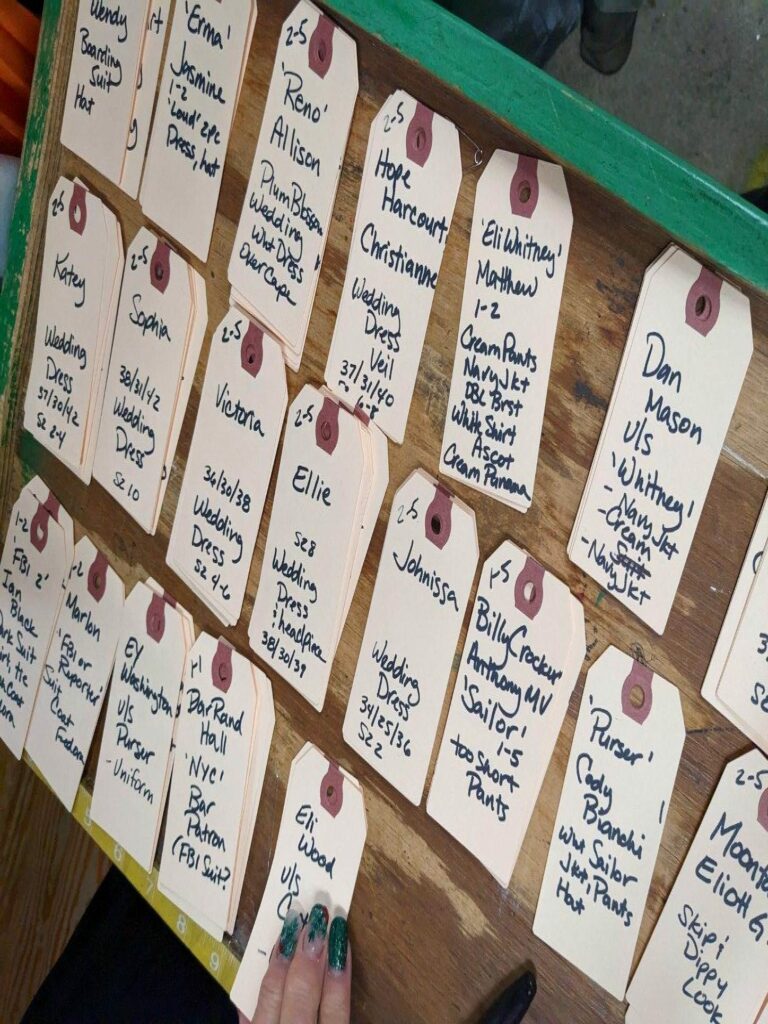 Wendy
Boarding
Suit
Hat
'Erma'
Jasmine
1-2
'Loud' 2pc
Dress, hat
2-5
'Reno'
Allison
Plum Blossom
Wedding
Wht Dress
Over Cape
2-5
Hope
Harcourt
Christianne
Wedding
Dress
Veil
37/31/40
6-8
'Eli Whitney'
Matthew
1-2
Cream Pants
Navy Jkt
DBL Brst
White Shirt
Ascot
Cream Panama
Dan
Mason
U/S
'Whitney'
- Navy Jkt
- Cream
- Navy Jkt
2-5
Katey
Wedding
Dress
37/30/42
Sz 2-4
2-5
Sophia
38/31/42
Wedding
Dress
Sz 10
2-5
Victoria
34/30/38
Wedding
Dress
Sz 4-6
2-5
Ellie
Sz 8
Wedding
Dress
: headpiece
38/30/39
2-5
Johnissa
Wedding
Dress
34/25/36
Sz 2
1-5
Billy Crocker
Anthony MV
'Sailor'
1-5
too Short
Pants
'Purser'
Cody
Bianchi
Wht Sailor
Jkt, Pants
Hat
2-5
Eliott G
Skip i
Dippy
Look
1-2
'FBI 2'
Ian
Black
Suit
tie
Coat
Marlon
'FBI or
Reporter'
Suit
Coat
Fedora
EV
Washington
U/S
Purser
- Uniform
Dar Rand
Hall
'NYC'
Bar
Patron
(FBI Suit?
Eli
Wood
U/S
6
7
8
9